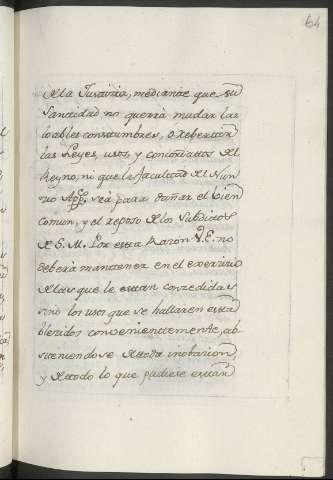 64
de la Justicia, mediante que su
Santidad no querrá mudar las
loables constumbres, o
las Leyes, usos, y del
Reyno, ni que la facultad del Nun
cio Appco. sea para dañar el bien
comun, y el reposo de los Subditos
de S. M. Por esta Razon V. E. no
deberá mantener en el exercicio
de las que le estan concedidas
sino los usos que se hallaren esta
blecidos convenientemente, ab
steniendose de toda inobacion
y de todo lo que pudiese